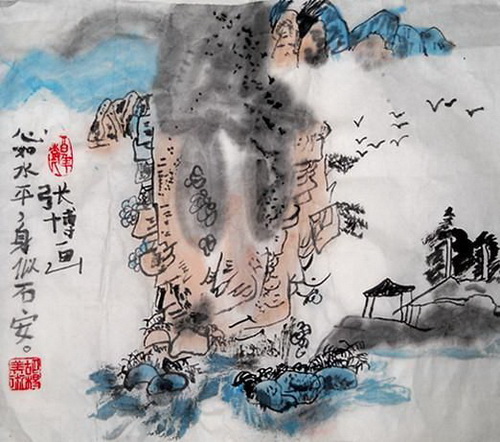 心如水平，身似石安。
张博画